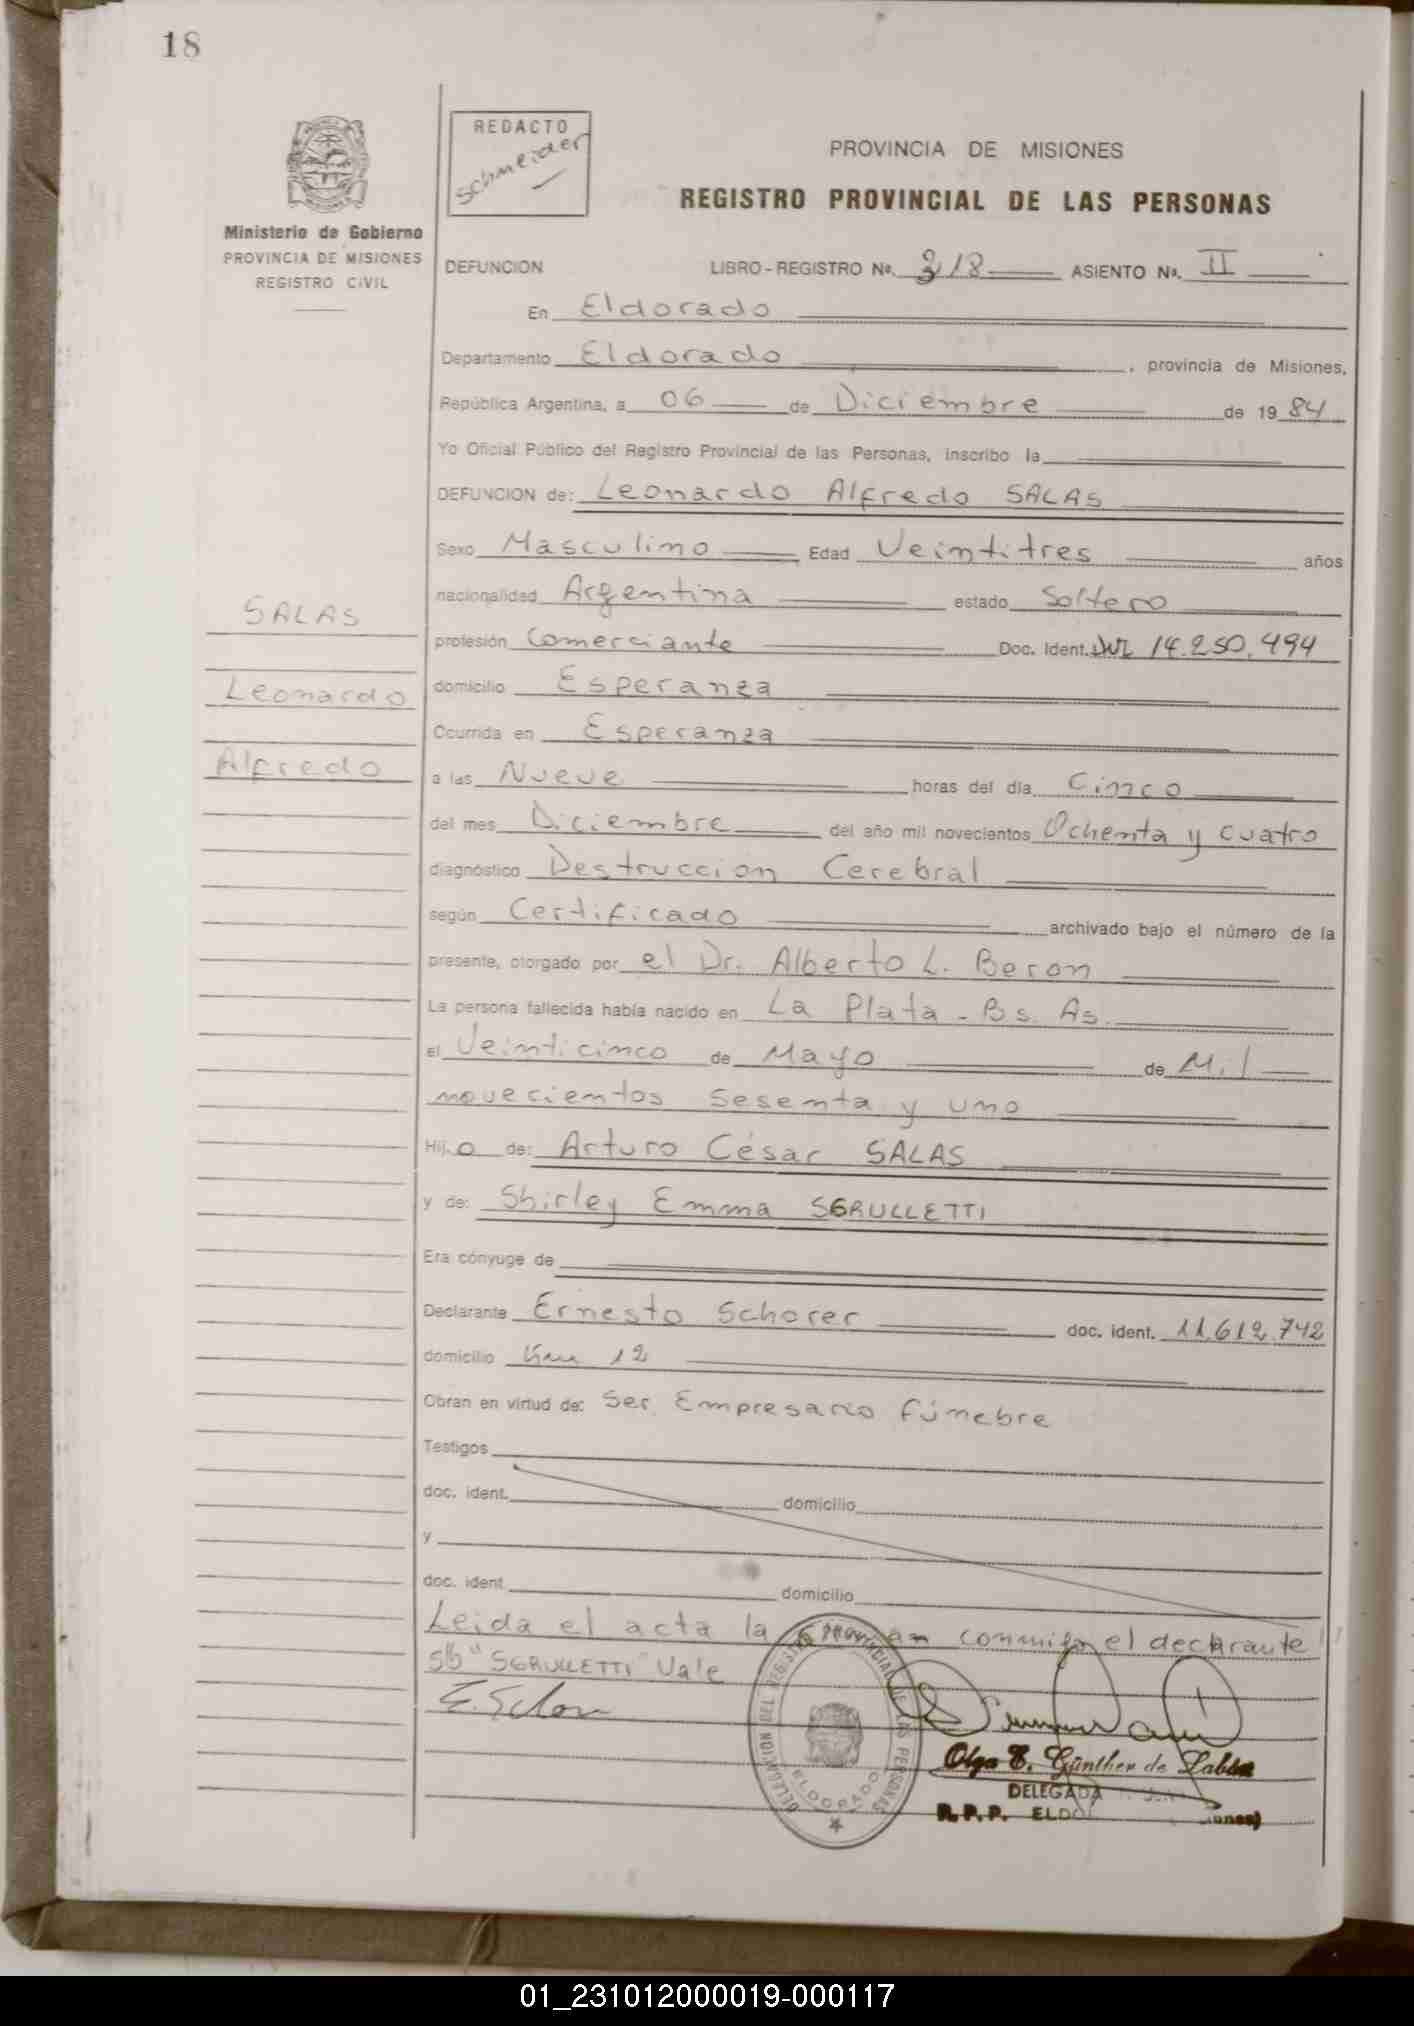 18
REDACTO
Schneider
PROVINCIA DE MISIONES
REGISTRO PROVINCIAL DE LAS PERSONAS
Ministerio de Gobierno
PROVINCIA DE MISIONES
REGISTRO CIVIL
DEFUNCION LIBRO-REGISTRO Nº. 318 ASIENTO Nº. II
En Eldorado
Departamento Eldorado, provincia de Misiones,
República Argentina, a 06 de Diciembre de 1984
Yo Oficial Público del Registro Provincial de las Personas, inscribo la
DEFUNCION de: Leonardo Alfredo SALAS
Sexo Masculino Edad Veintitres años
nacionalidad Argentina estado Soltero
profesión Comerciante Doc. Ident. 14.250.494
domicilio Esperanza
Ocurrida en Esperanza
a las Nueve horas del día Cinco
del mes Diciembre del año mil novecientos Ochenta y cuatro
diagnóstico Destruccion Cerebral
según Certificado archivado bajo el número de la
presente, otorgado por el Dr. Alberto L. Beron
La persona fallecida había nacido en La Plata - Bs. As.
El Veinticinco de Mayo de Mil
novecientos Sesenta y uno
Hijo de: Arturo César SALAS
y de: Shirley Emma SGRULLETTI
Era cónyuge de
Declarante Ernesto Schorer doc. ident. 11.612.742
domicilio Km 12
Obran en virtud de: Ser Empresario Fúnebre
Testigos
doc. ident. domicilio
y
doc. ident. domicilio
Leida el acta la conmigo el declarante
Sb "SGRULLETTI" Vale
SALAS
Leonardo
Alfredo
DELEGACION DEL REGISTRO PROVINCIAL DE LAS PERSONAS
ELDORADO
Olga E. Günther de
DELEGADA
R.P.P.
01_231012000019-000117